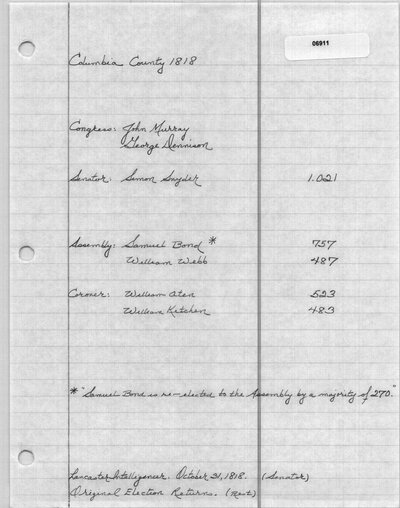 06911
Columbia County 1818
Congress: John Murray
George Dennison
Senator: Simon Snyder 1.021
Assembly: Samuel Bond * 757
William Webb 487
Coroner: William Aten 523
William Ketchen 483
* "Samuel Bond is re-elected to the Assembly by a majority of 270."
Lancaster Intelligencer. October 31, 1818. (Senator)
Original Election Returns. (Rest)